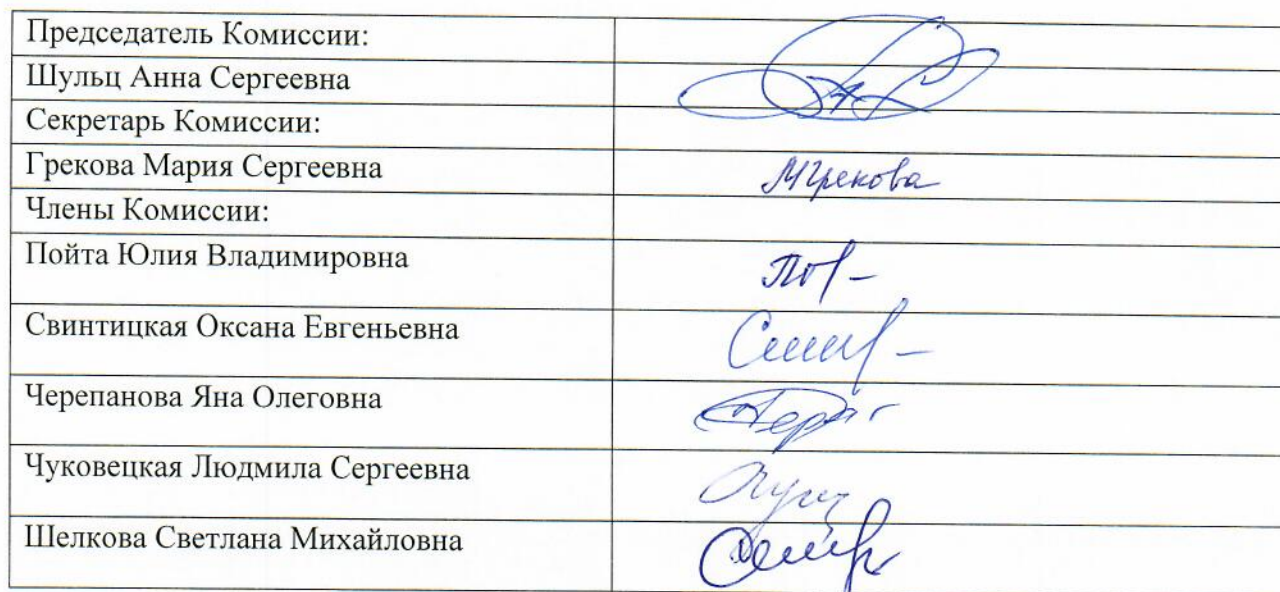 Председатель Комиссии:
Шульц Анна Сергеевна
Секретарь Комиссии:
Грекова Мария Сергеевна
МГрекова
Члены Комиссии:
Пойта Юлия Владимировна
Свинтицкая Оксана Евгеньевна
Черепанова Яна Олеговна
Чуковецкая Людмила Сергеевна
Шелкова Светлана Михайловна